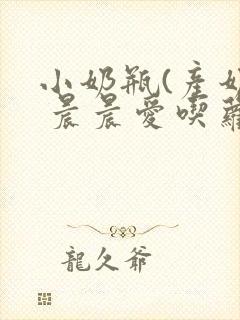 小奶瓶(產奶
晨晨愛喫蘿
龍久爺